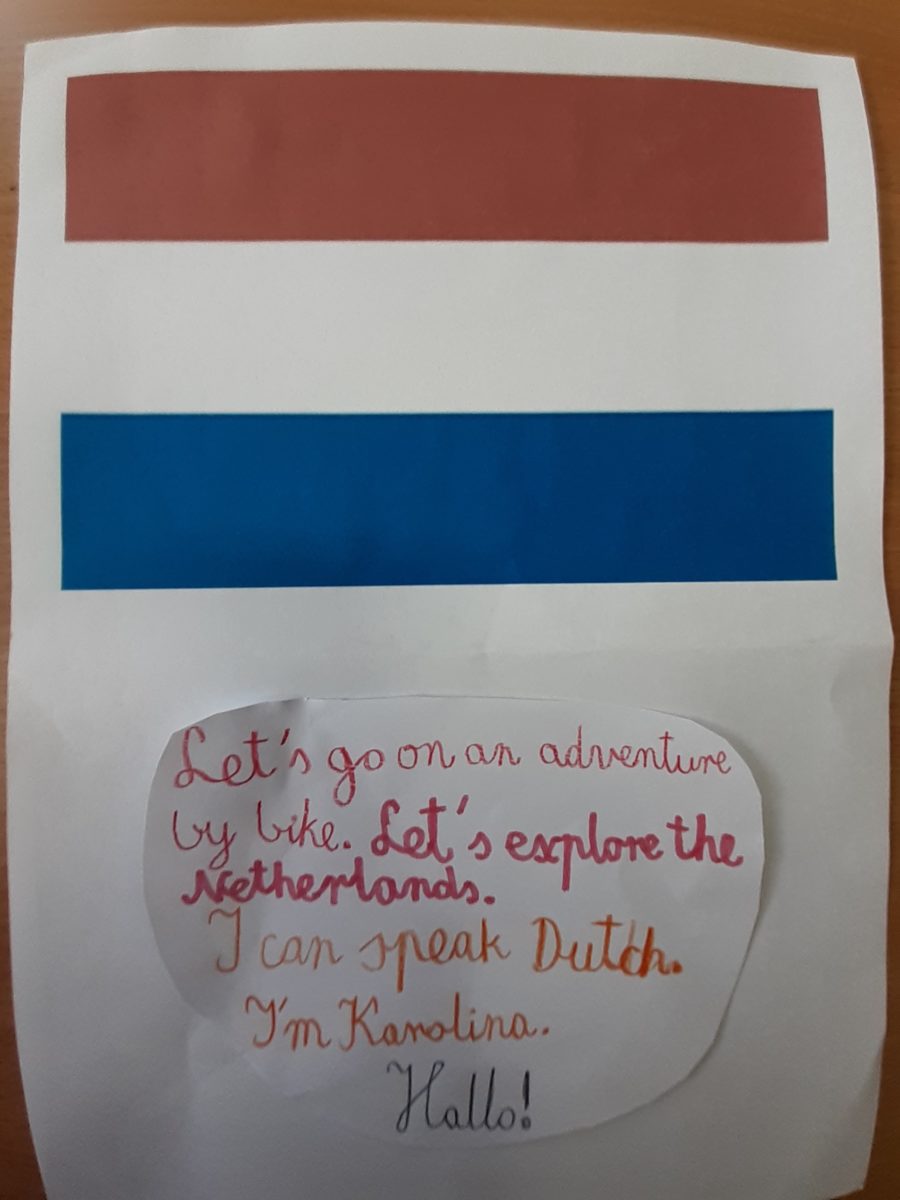 Let's go on an adventure
by bike. Let's explore the
Netherlands.
I can speak Dutch.
I'm Karolina.
Hallo!